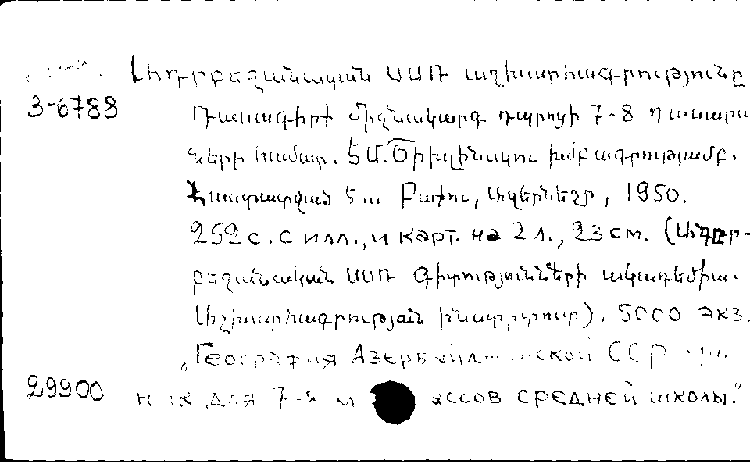 Ադրբեջանական ՍՍՌ աշխարհագրությունը
3-6788 Դասագիրք միջնակարգ դպրոցի 7-8 դասարան-
ների համար. Տ.Մ. Ծիրիլինսկու խմբագրությամբ.
Հրատարակչ. Բաքու, Ազերնեշր, 1950.
252 с. с илл., и карт. на 2 л., 23 см. (Ադըր-
բեջանական ՍՍՌ Գիտությունների ակադեմիա.
Աշխարհագրության ինստիտուտ). 5000 экз.
„География Азербайджанской ССР
29900 для 7- классов средней школы."